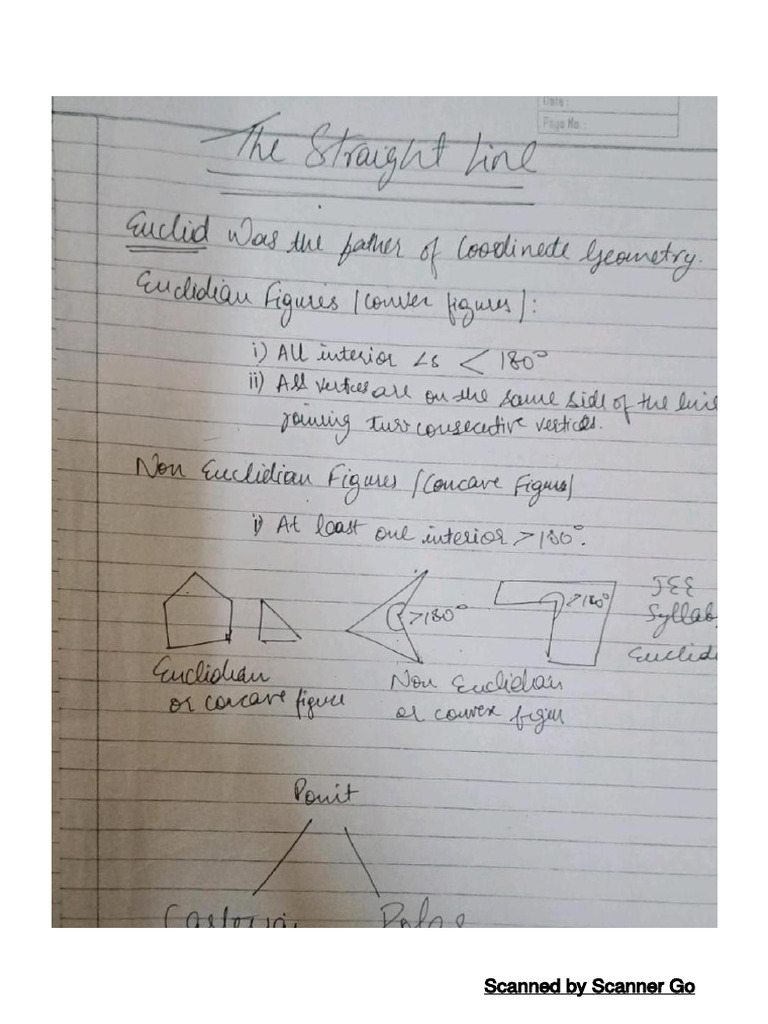 Date:
Page No.:
The Straight Line
Euclid was the father of Coodinate Geometry.
Euclidian Figures (Conver figures):
i) All interior ∠s < 180°
ii) All vertices are on the same side of the line
joining two consecutive vertices.
Non Euclidian Figures (Concave Figure)
i) At least one interior > 180°.
>180°
>180°
JEE
Syllab
Euclid
Euclidian
or concave figure
Non Euclidian
or convex figure
Point
Scanned by Scanner Go